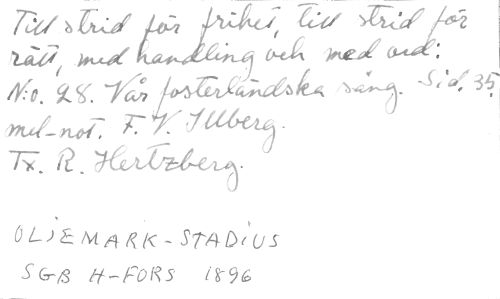 Till strid för frihet, till strid för
rätt, med handling och med ord:
N:o. 28. Vår fosterländska sång. Sid. 35.
mel-not. F. V. Illberg.
Tx. R. Hertzberg.
OLJEMARK-STADIUS
SGB H-FORS 1896